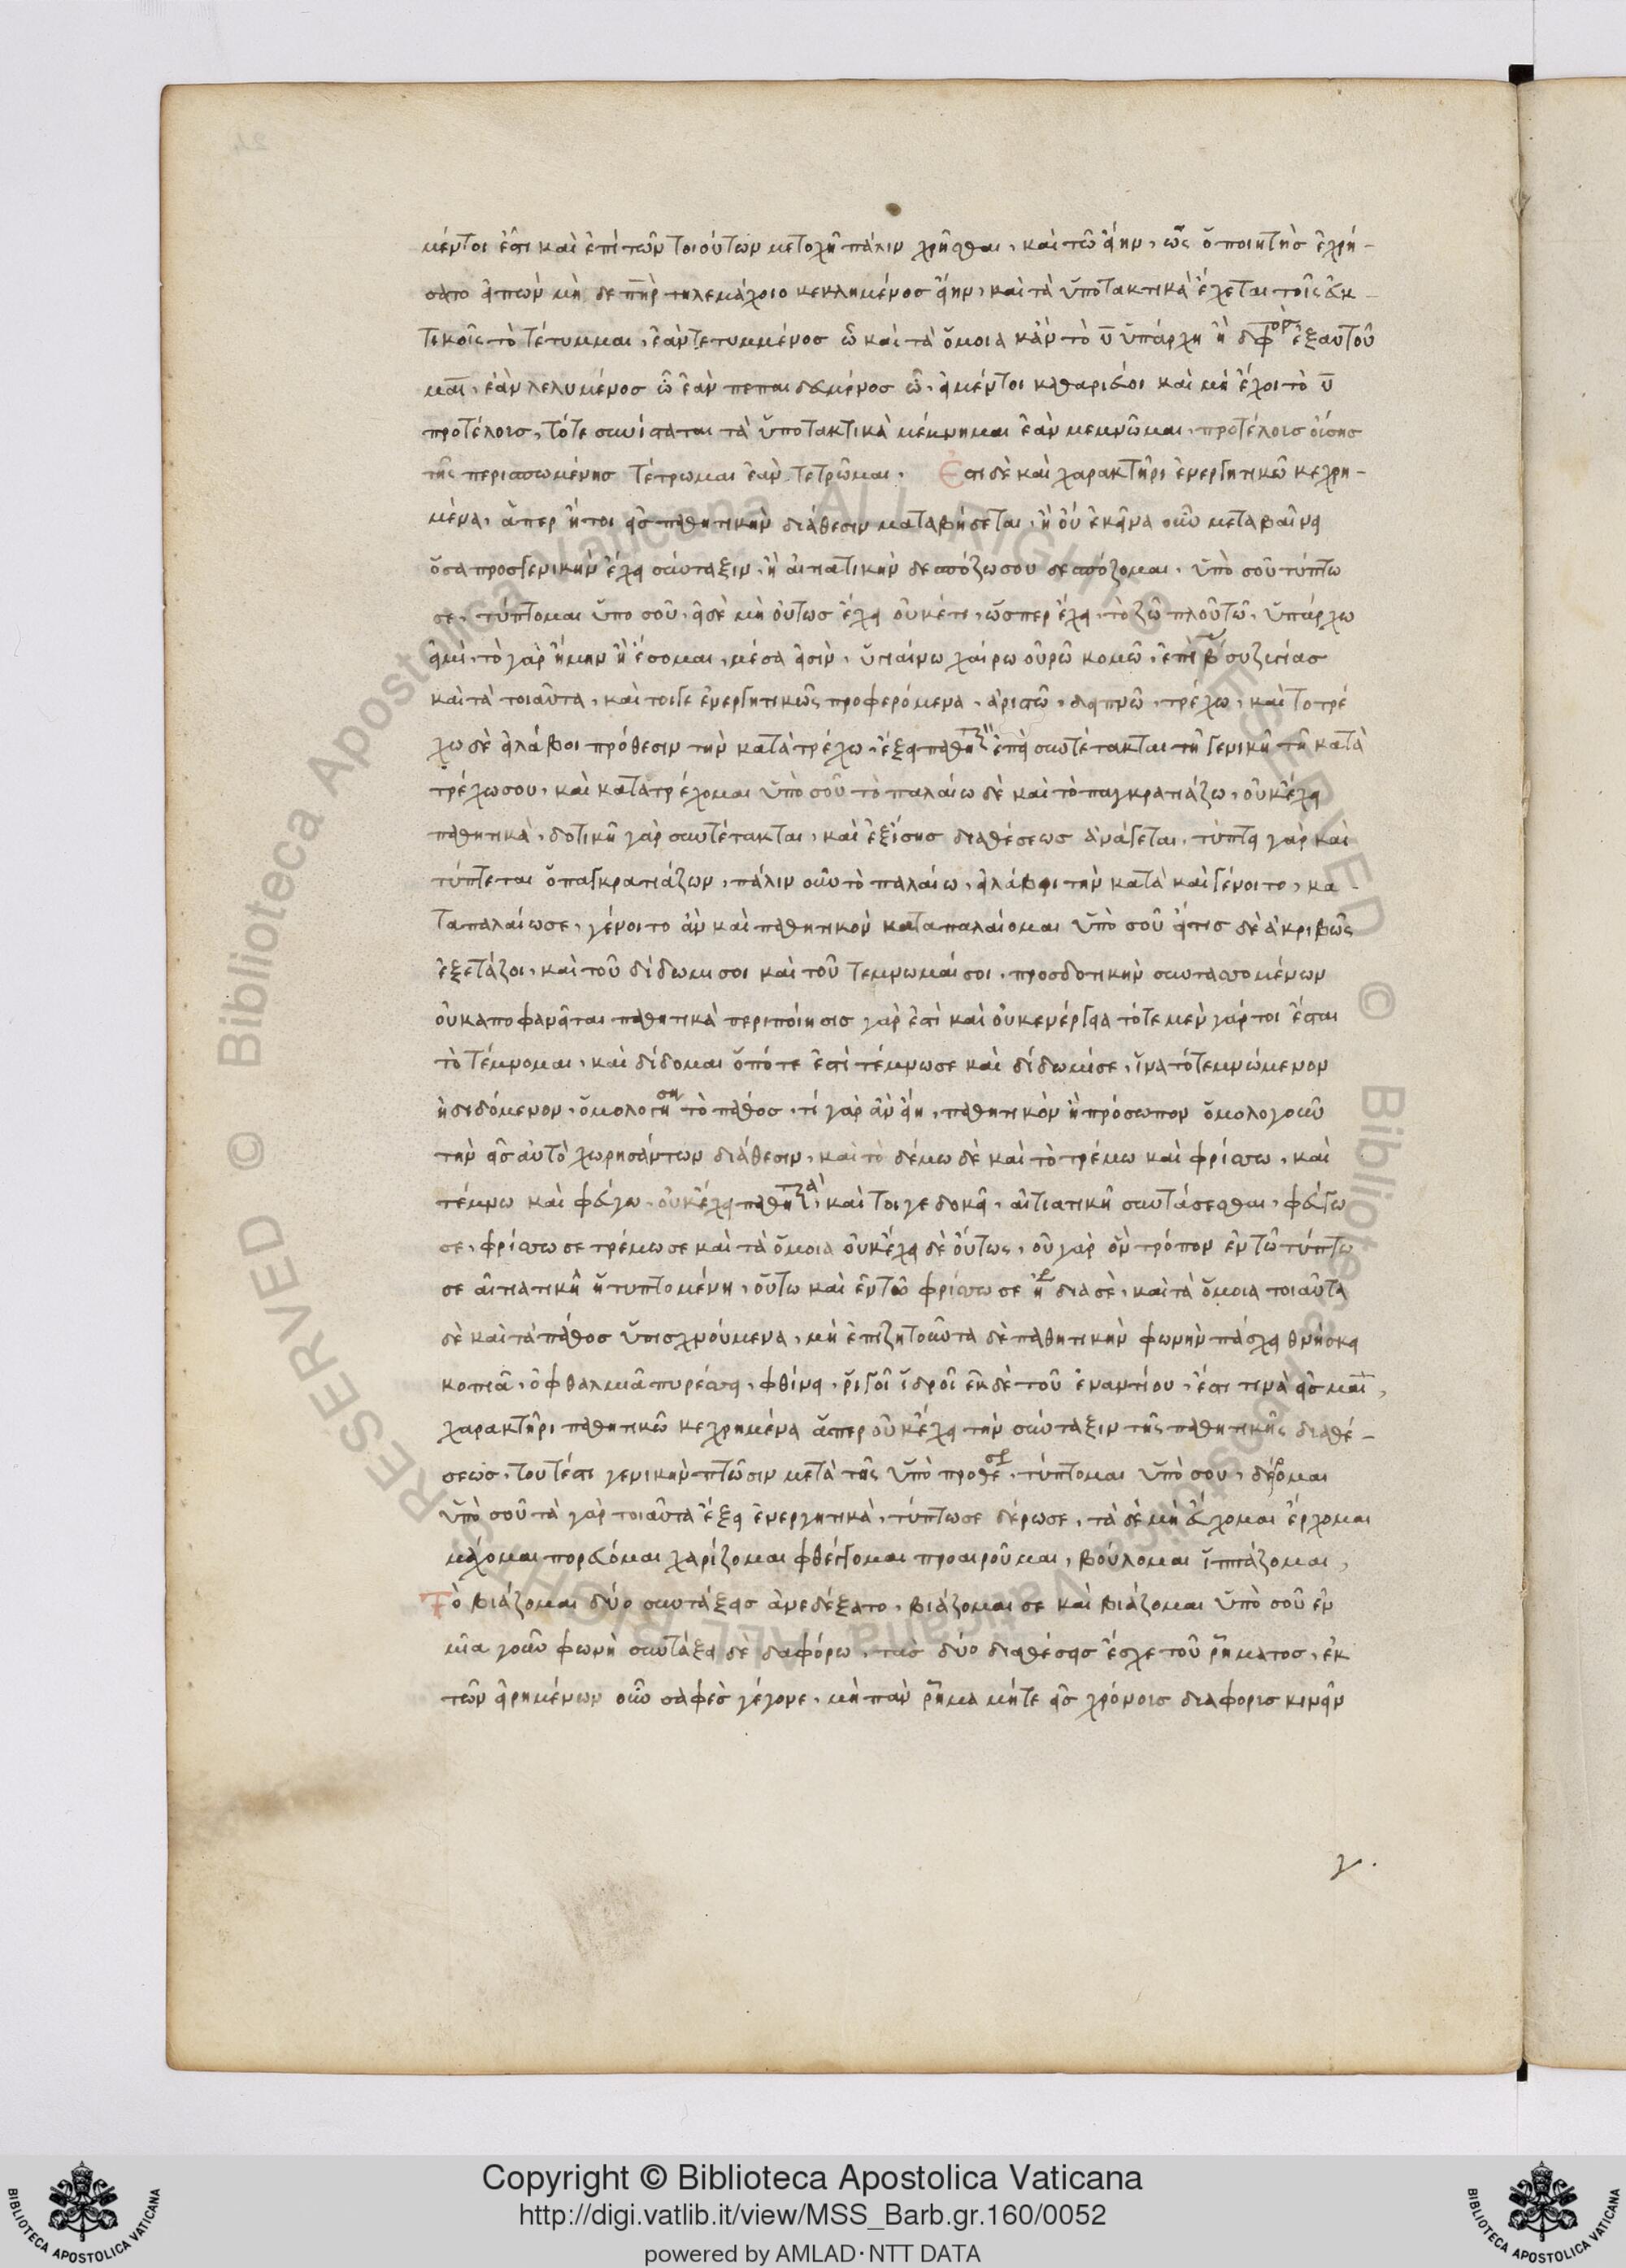 μέντοι ἐστι καὶ ἐπὶ τῶν τοιούτων μετοχῆ πάλιν χρῆσθαι, καὶ τῶ εἴην, ὡς ὁ ποιητὴσ ἐχρή-
σατο εἰπων μὴ δε πηρ τηλεμάχοιο κεκλημένοσ εἴην, καὶ τὰ ὑποτακτικὰ ἕχεται τοῖς ἐυκ-
τικοῖς τὸ τέτυμμαι, ἐὰν τετυμμένοσ ὦ καὶ τὰ ὅμοια κἂν τὸ υ ὑπάρχη ἢ δφορ ἐξαυτοῦ
μαι, ἐὰν λελυμένοσ ὦ ἐὰν πεπαιδευμένοσ ὦ, εἰ μέντοι καθαρεύοι καὶ μὴ ἔχοι τὸ υ
προτέλουσ, τότε συνίσταται τὰ ὑποτακτικὰ μέμνημαι ἐὰν μεμνῶμαι, προτέλουσ οὔσησ
τῆς περισπωμένησ τέτρωμαι ἐὰν τετρῶμαι. Ἔστι δὲ καὶ χαρακτῆρι ἐνεργητικῶ κεχρη-
μένα, ἅπερ ἤτοι εἰσ παθητικὴν διάθεσιν μεταβήσεται, ἢ οὔ ἐκεῖνα οὖν μεταβαίνει
ὅσα προσγενικὴν ἔχει σύνταξιν, ἢ αἰτιατικὴν δεσπόζω σου δεσπόζομαι, ὑπὸ σοῦ τύπτω
σε, τύπτομαι ὑπο σοῦ, εἰ δὲ μὴ οὕτωσ ἔχει οὐκέτι, ὥσπερ ἔχει, τὸ ζῶ πλουτῶ, ὑπάρχω
εἰμί, τὸ γὰρ ἤμην ἢ ἔσομαι, μέσα εἰσὶν, ὑγιαίνω χαίρω οὐρῶ κομῶ, ἐπὶ β συζυγίασ
καὶ τὰ τοιαῦτα, καὶ τοιγε ἐνεργητικῶς προφερόμενα, ἀριστῶ, δειπνῶ, τρέχω, καὶ το τρέ
χω δὲ εἰ λάβοι πρόθεσιν τὴν κατὰ τρέχω, ἕξει παθητι ἐπεὶ συντέτακται τῆ γενικῆ τῆ κατὰ
τρέχω σου, καὶ κατατρέχομαι ὑπὸ σοῦ τὸ παλαίω δὲ καὶ τὸ παγκρατιάζω, οὐκ ἔχει
παθητικὰ, δοτικῆ γὰρ συντέτακται, καὶ ἐξίσησ διαθέσεωσ ἀνάγεται, τύπτει γὰρ καὶ
τύπτεται ὁ παγκρατιάζων, πάλιν οὖν τὸ παλαίω, εἰ λάβοι τὴν κατὰ καὶ γένοιτο, κα-
ταπαλαίω σε, γένοιτο ἂν καὶ παθητικὸν καταπαλαίομαι ὑπὸ σοῦ εἴ τισ δὲ ἀκριβῶς
ἐξετάζοι, καὶ τοῦ δίδωμι σοι καὶ τοῦ τεμνωμαί σοι, προσδοτικὴν συντασσομένων
οὐκ αποφανεῖται παθητικὰ περιποίησισ γὰρ ἐστὶ καὶ οὐκ ενέργεια τότε μὲν γάρ τοι ἔσται
τὸ τέμνομαι, καὶ δίδομαι ὁπότε ἐστὶ τέμνω σε καὶ δίδωμί σε, ἵνα τὸ τεμνώμενον
ἢ διδόμενον, ὁμολογήση τὸ πάθοσ, τί γὰρ ἂν εἴη, παθητικὸν ἢ πρόσωπον ὁμολογοῦν
τὴν εἰσ αὐτὸ χωρησάντων διάθεσιν, καὶ τὸ δέμω δὲ καὶ τὸ τρέμω καὶ φρίσσω, καὶ
τέμνω καὶ φεύγω, οὐκ ἔχει παθητικὰ, καὶ τοι γε δοκεῖ, αἰτιατικῆ συντάσεσθαι, φεύγω
σε, φρίσσω σε τρέμω σε καὶ τὰ ὅμοια οὐκ ἔχει δὲ οὕτως, οὐ γὰρ ὃν τρόπον ἐν τῶ τύπτω
σε αἰτιατικὴ ἡ τυπτομένη, οὕτω καὶ ἐν τῶ φρίσσω σε ἢ δια σὲ, καὶ τὰ ὅμοια τοιαῦτα
δὲ καὶ τὰ πάθοσ ὑπισχνούμενα, μὴ ἐπιζητοῦντα δὲ παθητικὴν φωνὴν πάσχει θνήσκει
κοπιᾶ, ὀφθαλμιᾶ πυρέσσει, φθίνει, ῥιγοῖ ἱδροῖ ἐκ δὲ τοῦ ἐναντίου, ἔστι τινὰ εἰσ μαι,
χαρακτῆρι παθητικῶ κεχρημένα ἅπερ οὐκ ἔχει τὴν σύνταξιν τῆς παθητικῆς διαθέ-
σεωσ, τουτέστι γενικὴν πτῶσιν μετὰ τῆς ὑπὸ προθέσ, τύπτομαι ὑπὸ σου, δέρομαι
ὑπὸ σοῦ τὰ γὰρ τοιαῦτα ἕξει ἐνεργητικὰ, τύπτω σε δέρω σε, τὰ δὲ μὴ εὔχομαι ἔρχομαι
μάχομαι πορεύομαι χαρίζομαι φθέγγομαι προαιροῦμαι, βούλομαι ἱππάζομαι,
Τὸ βιάζομαι δύο συντάξεισ ἀνεδέξατο, βιάζομαι σε καὶ βιάζομαι ὑπὸ σοῦ ἐν
μία γοῦν φωνὴ συντάξει δὲ διαφόρω, τὰσ δύο διαθέσεισ ἔσχε τοῦ ῥήματοσ, ἐκ
τῶν εἰρημένων οὖν σαφὲσ γέγονε, μὴ πᾶν ῥῆμα μήτε εἰσ χρόνοισ διαφορισ κινεῖν
γ.
Copyright © Biblioteca Apostolica Vaticana
http://digi.vatlib.it/view/MSS_Barb.gr.160/0052
powered by AMLAD·NTT DATA